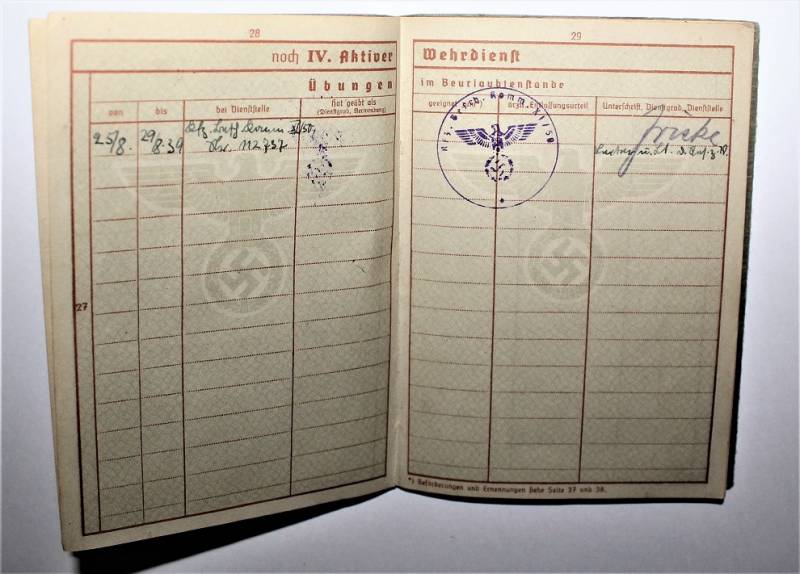 28
noch IV. Aktiver
Übungen
von
bis
bei Dienststelle
Hat geübt als
(Dienstgrad, Verwendung)
25/8.
29/8.39
XI/50,
Nr. 112737
27
29
Wehrdienst
im Beurlaubtenstande
geeignet
ärztl. Entlassungsurteil
Unterschrift, Dienstgrad, Dienststelle
XI/50
Fricke
*) Beförderungen und Ernennungen siehe Seite 37 und 38.